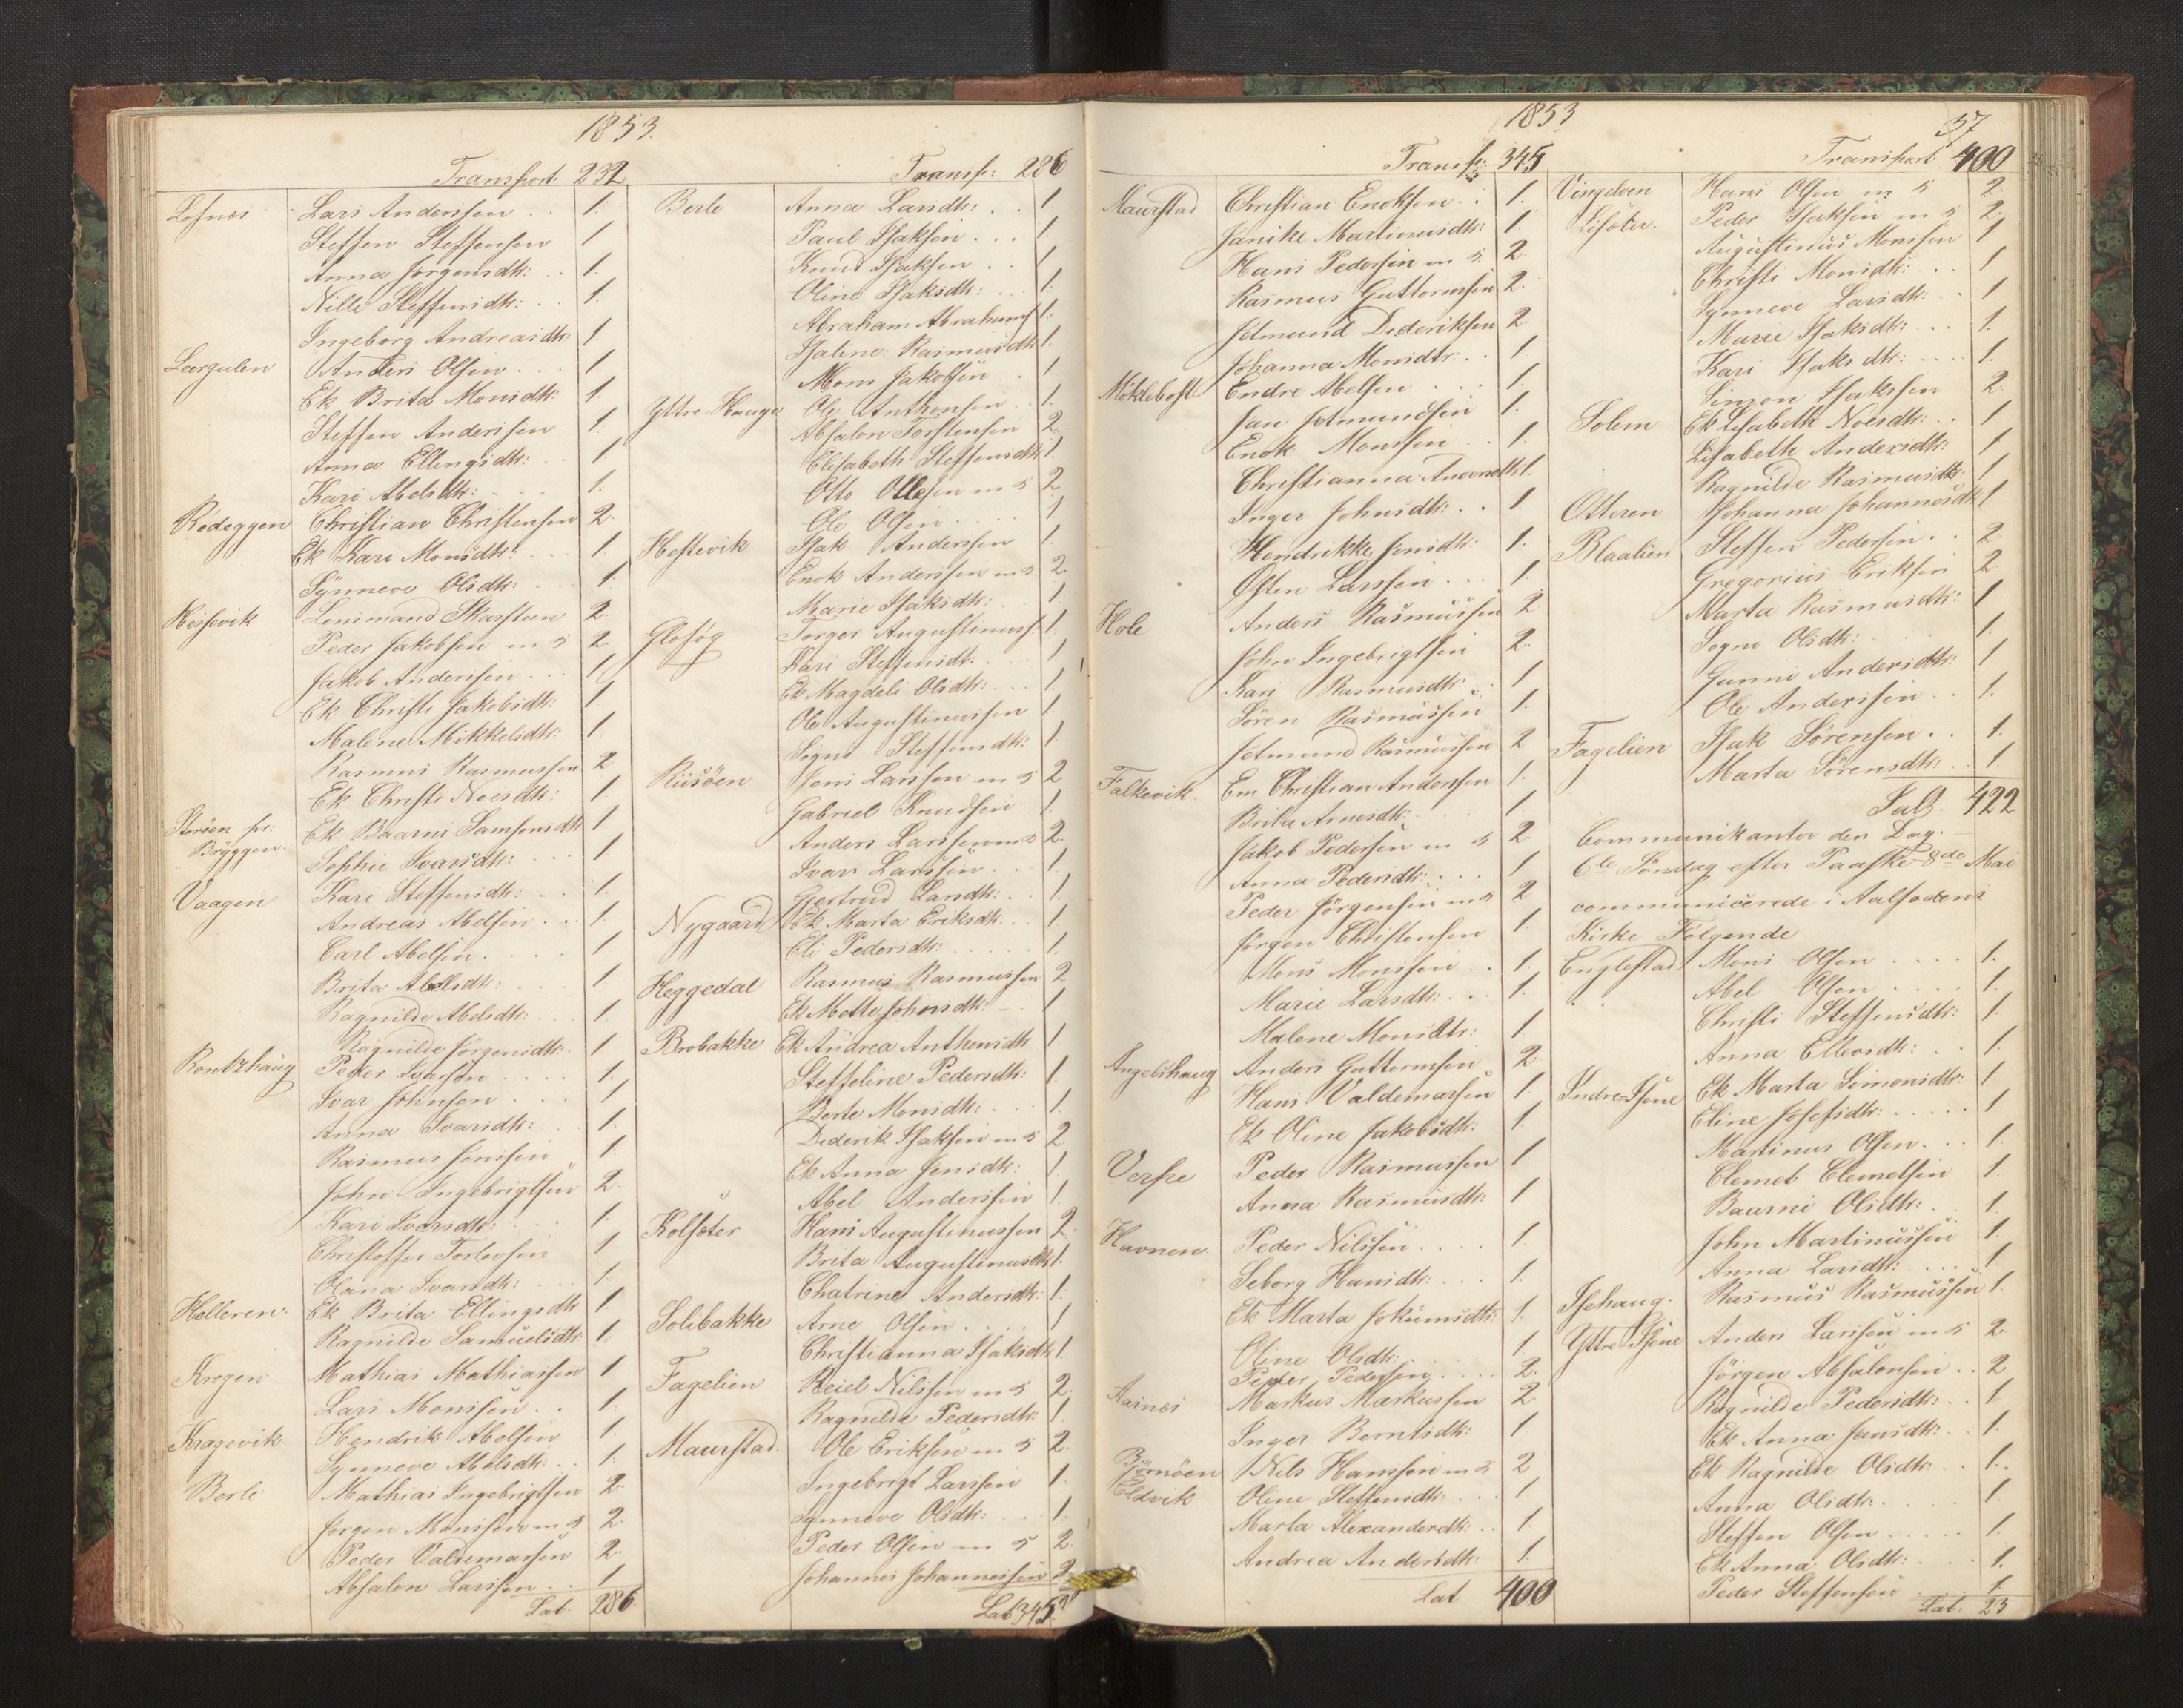 1853.
Transport. 232
Lofnæs Lars Anderssen . . 1.
Steffen Steffensen 1
Anna Jørgensdtr: . . 1.
Nille Steffensdtr: . . 1.
Ingeborg Andreasdtr 1
Leergulen Anders Olsen . . . 1
Ek Brita Monsdtr: 1.
Steffen Anderssen 1.
Anna Ellingsdtr: . . 1
Kari Abelsdtr: . . . 1.
Rødeggen Christian Christensen 2.
Ek Kari Monsdtr: . . . 1.
Synneve Olsdtr: . . . 1.
Heſsevik Lensmand Skarsteen 2.
Peder Jakobsen m s 2.
Jakob Anderssen . . . 1
Ek Christi Jakobsdtr: 1
Malene Mikkelsdtr: 1
Rasmus Rasmussen 2
Ek Christi Noesdtr: 1
Storøen pr: Bryggen. Ek Baarni Samsonsdtr 1
Sophie Ivarsdtr: . . . 1
Vaagen Kari Steffensdtr: . . . 1.
Andreas Abelsen . . . 1.
Carl Abelsen . . . . 1
Brita Abelsdtr: . . . 1
Ragnilde Abelsdtr: . . . 1.
Ragnilde Jørgensdtr. 1
Rontzhaug Peder Ivarsøn . . . . 1.
Ivar Johnsen . . . 1
Anna Ivarsdtr: . . . 1.
Rasmus Jenssen 1
John Ingebrigtsen 2.
Kari Ivarsdtr: . . . 1.
Christoffer Torlevsen 1
Olana Ivarsdtr: . . . 1.
Helleren. Ek Brita Ellingsdtr 1.
Ragnilde Samuelsdtr 1.
Kregen Mathias Mathiassen 1
Lars Monssen . . 1.
Kragevik Hendrik Abelsen 1.
Synneve Abelsdtr: . . 1.
Berle Mathias Ingebrigtsen 2.
Jørgen Monssen m s 2.
Peder Valdemarsen 2.
Absalon Larssen . . 1
Lat. 286
Transp: 286
Berle Anna Larsdtr: . . 1
Paul Isaksen . . . 1
Knud Isaksen . . 1
Oline Isaksdtr: . . . 1.
Abraham Abrahams 1.
Isaline Rasmusdtr 1.
Mons Jakobsen . 1
Yttre Hauge Ole Anthonsen . . 1.
Absalon Torstensen 2.
Elisabeth Steffensdtr 1.
Otto Ollesen m s 2
Ole Olsen . . . . 1
Hestevik Isak Anderssen 1.
Enok Anderssen m s 2.
Marie Isaksdtr: . . 1.
Glosøg Torger Augustinuss. 1.
Kari Steffensdtr. . . 1
Ek Magdeli Olsdtr: . . . 1.
Ole Augustinussen 1
Signe Steffensdtr: 1.
Riisøen Jens Larssen m s 2
Gabriel Knudsen 1.
Anders Larssen m s 2.
Ivar Larssen . . . 1.
Gjertrud Larsdtr: . . 1.
Nygaard Ek Marta Eriksdtr: . . 1
Eli Pedersdtr: . . . . 1.
Heggedal Rasmus Rasmussen 2
Ek Mette Johnsdtr: 1
Brobakke Ek Andrea Anthonsdtr 1.
Steffeline Pedersdtr: 1.
Berte Monsdtr: . . . 1.
Diderik Isaksen m s 2
Ek Anna Jensdtr: 1.
Abel Anderssen 1.
Kolsæter Hans Augustinussen 2.
Brita Augustinusdtr 1.
Chatrine Andersdtr: 1.
Solibakke Arne Olsen . . . . 1
Christianna Isaksdtr 1.
Fagelien Reiel Nilssen m s 2.
Ragnilde Pedersdtr: 1.
Maurstad. Ole Eriksen m s 2.
Ingebrigt Larssen 1.
Synneve Olsdtr: . . . 1.
Peder Olsen m s 2.
Johannes Johannessen 2
Lat 345
1853
Transp: 345
Maurstad Christian Enoksen . . 1.
Janike Martinusdtr: 1.
Hans Pedersen m s 2.
Rasmus Guttormsen 2.
Jetmund Dideriksen 2
Johanna Monsdtr: . . 1
Møklebost Endre Abelsen . . . 1.
Jan Jetmundsen 1.
Enok Monssen . . 1.
Christianna 1.
Inger Johnsdtr: . . 1
Hendrikke Jensdtr: 1.
Osten Larssen . . . 1.
Hole Anders Rasmussen 2
John Ingebrigtsen 2.
Kari Rasmusdtr: . . 1
Søren Rasmussen 1.
Jetmund Rasmussen 2
Falkevik. Em Christian Anderssen 1.
Brita Arnesdtr: . . . 1
Jakob Pedersen m s 2
Anna Pedersdtr: . . . 1
Peder Jørgensen m s 2
Jørgen Christensen 1.
Mons Monssen . . 1.
Marie Larsdtr: . . . 1.
Malene Monsdtr: 1
Angelshaug Anders Guttormsen 2
Hans Valdemarsen 1.
Ek Oline Jakobsdtr: 1.
Verpe Peder Rasmussen 1
Anna Rasmusdtr: 1
Havnen. Peder Nilssen . . . . 1.
Seborg Hansdtr: . . . 1.
Ek Marta Jokumsdtr: 1.
Oline Olsdtr: . . . 1.
Peder Pedersen . . . . 2.
Aarnes Markus Markussen 2
Inger Berntsdtr: 1
Bjørnøen Nils Hanssen m s 2
Eldvik Oline Steffensdtr: . . . 1
Marta Alexandersdtr: . . 1.
Andrea Andersdtr: 1.
Lat 400
37
Transport 400
Vingelven Hans Olsen m s 2.
Lisæter. Peder Isaksen m s 2.
Augustinus Monssen 1
Christi Monsdtr: . . . 1
Synneve Larsdtr: . . 1.
Marie Isaksdtr: . . . 1.
Kari Isaksdtr: . . . . 1.
Simon Isaksen 2.
Solem Ek Lisabeth Noesdtr: . . 1
Lisabeth Andersdtr: 1
Ragnilde Rasmusdtr: 1
Otteren Johanna Johannesdtr 1
Blaalien Steffen Pedersen . . 2
Gregorius Eriksen 2
Marta Rasmusdtr: 1
Signe Olsdtr: . . . 1.
Gunni Andersdtr: 1.
Ole Anderssen . . 1.
Fagelien Isak Sørensen . . 1.
Marta Sørensdtr: . . 1.
Salg. 422
Communikanter den Dag.
6te Søndag efter Paaske 8de Mai
communicerede i Aalfodens
Kirke Følgende
Englestad Mons Olsen . . . . 1.
Abel Olsen . . . . . 1.
Christi Steffensdtr: 1.
Anna Ellevsdtr: . . 1.
Indre=Isene Ek Marta Simonsdtr: 1
Eline Josefsdtr: . . . . . 1
Martinus Olsen . . . 1.
Clemet Clemetsen 1.
Baarni Olsdtr: . . 1.
John Martinussen 1.
Anna Larsdtr: . . . . 1
Isehaug. Rasmus Rasmussen 1.
Yttre Isene Anders Larssen m s 2.
Jørgen Absalonsen . . 2
Ragnilde Pedersdtr: . . 1
Ek Anna Jansdtr: . . 1.
Ek Ragnilde Olsdtr: . . 1.
Anna Olsdtr: . . . . 1.
Steffen Olsen . . . . . 1.
Ek Anna Olsdtr: . . . 1.
Peder Steffensen 1.
Lat: 23